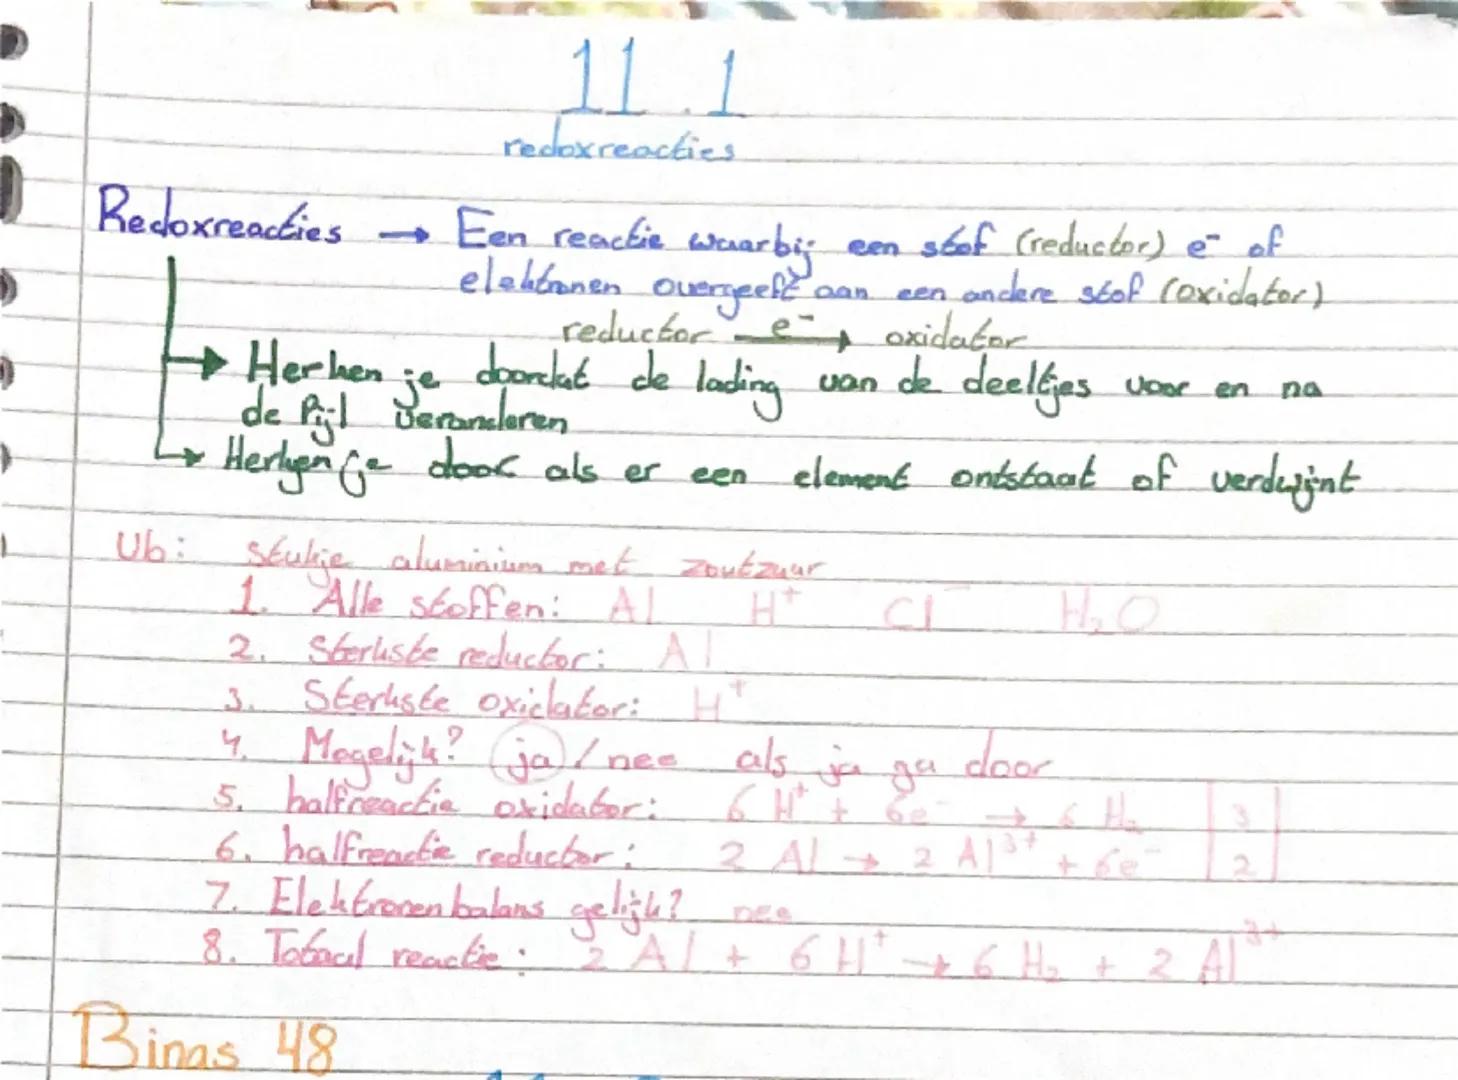 11.1
redoxreacties
Redoxreacties → Een reactie waarbij een stof (reductor) e⁻ of
elektronen overgeeft aan een andere stof (oxidator)
reductor —e⁻→ oxidator
→ Herken je doordat de lading van de deeltjes voor en na
de Pijl veranderen
→ Herken je door als er een element ontstaat of verdwijnt
Vb: stukje aluminium met zoutzuur
1. Alle stoffen: Al H⁺ Cl⁻ H₂O
2. Sterkste reductor: Al
3. Sterkste oxidator: H⁺
4. Mogelijk? ja / nee als ja ga door
5. halfreactie oxidator: 6 H⁺ + 6e⁻ → 6 H₂ | 3 |
6. halfreactie reductor: 2 Al → 2 Al³⁺ + 6e⁻ | 2 |
7. Elektronenbalans gelijk? nee
8. Totaal reactie: 2 Al + 6 H⁺ → 6 H₂ + 2 Al³⁺
Binas 48